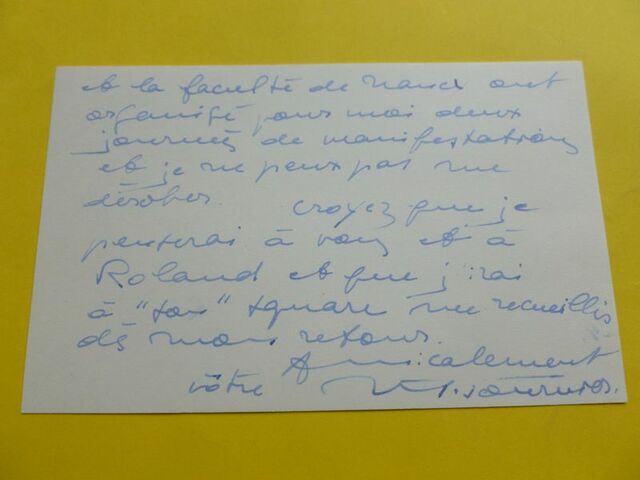 et la faculté de Nanci ont
organisé pour moi deux
journées de manifestations
et je ne peux pas me
dérober. Croyez que je
penserai à vous et à
Roland et que j'irai
à "son" square me recueillir
dès mon retour.
Amicalement
vôtre